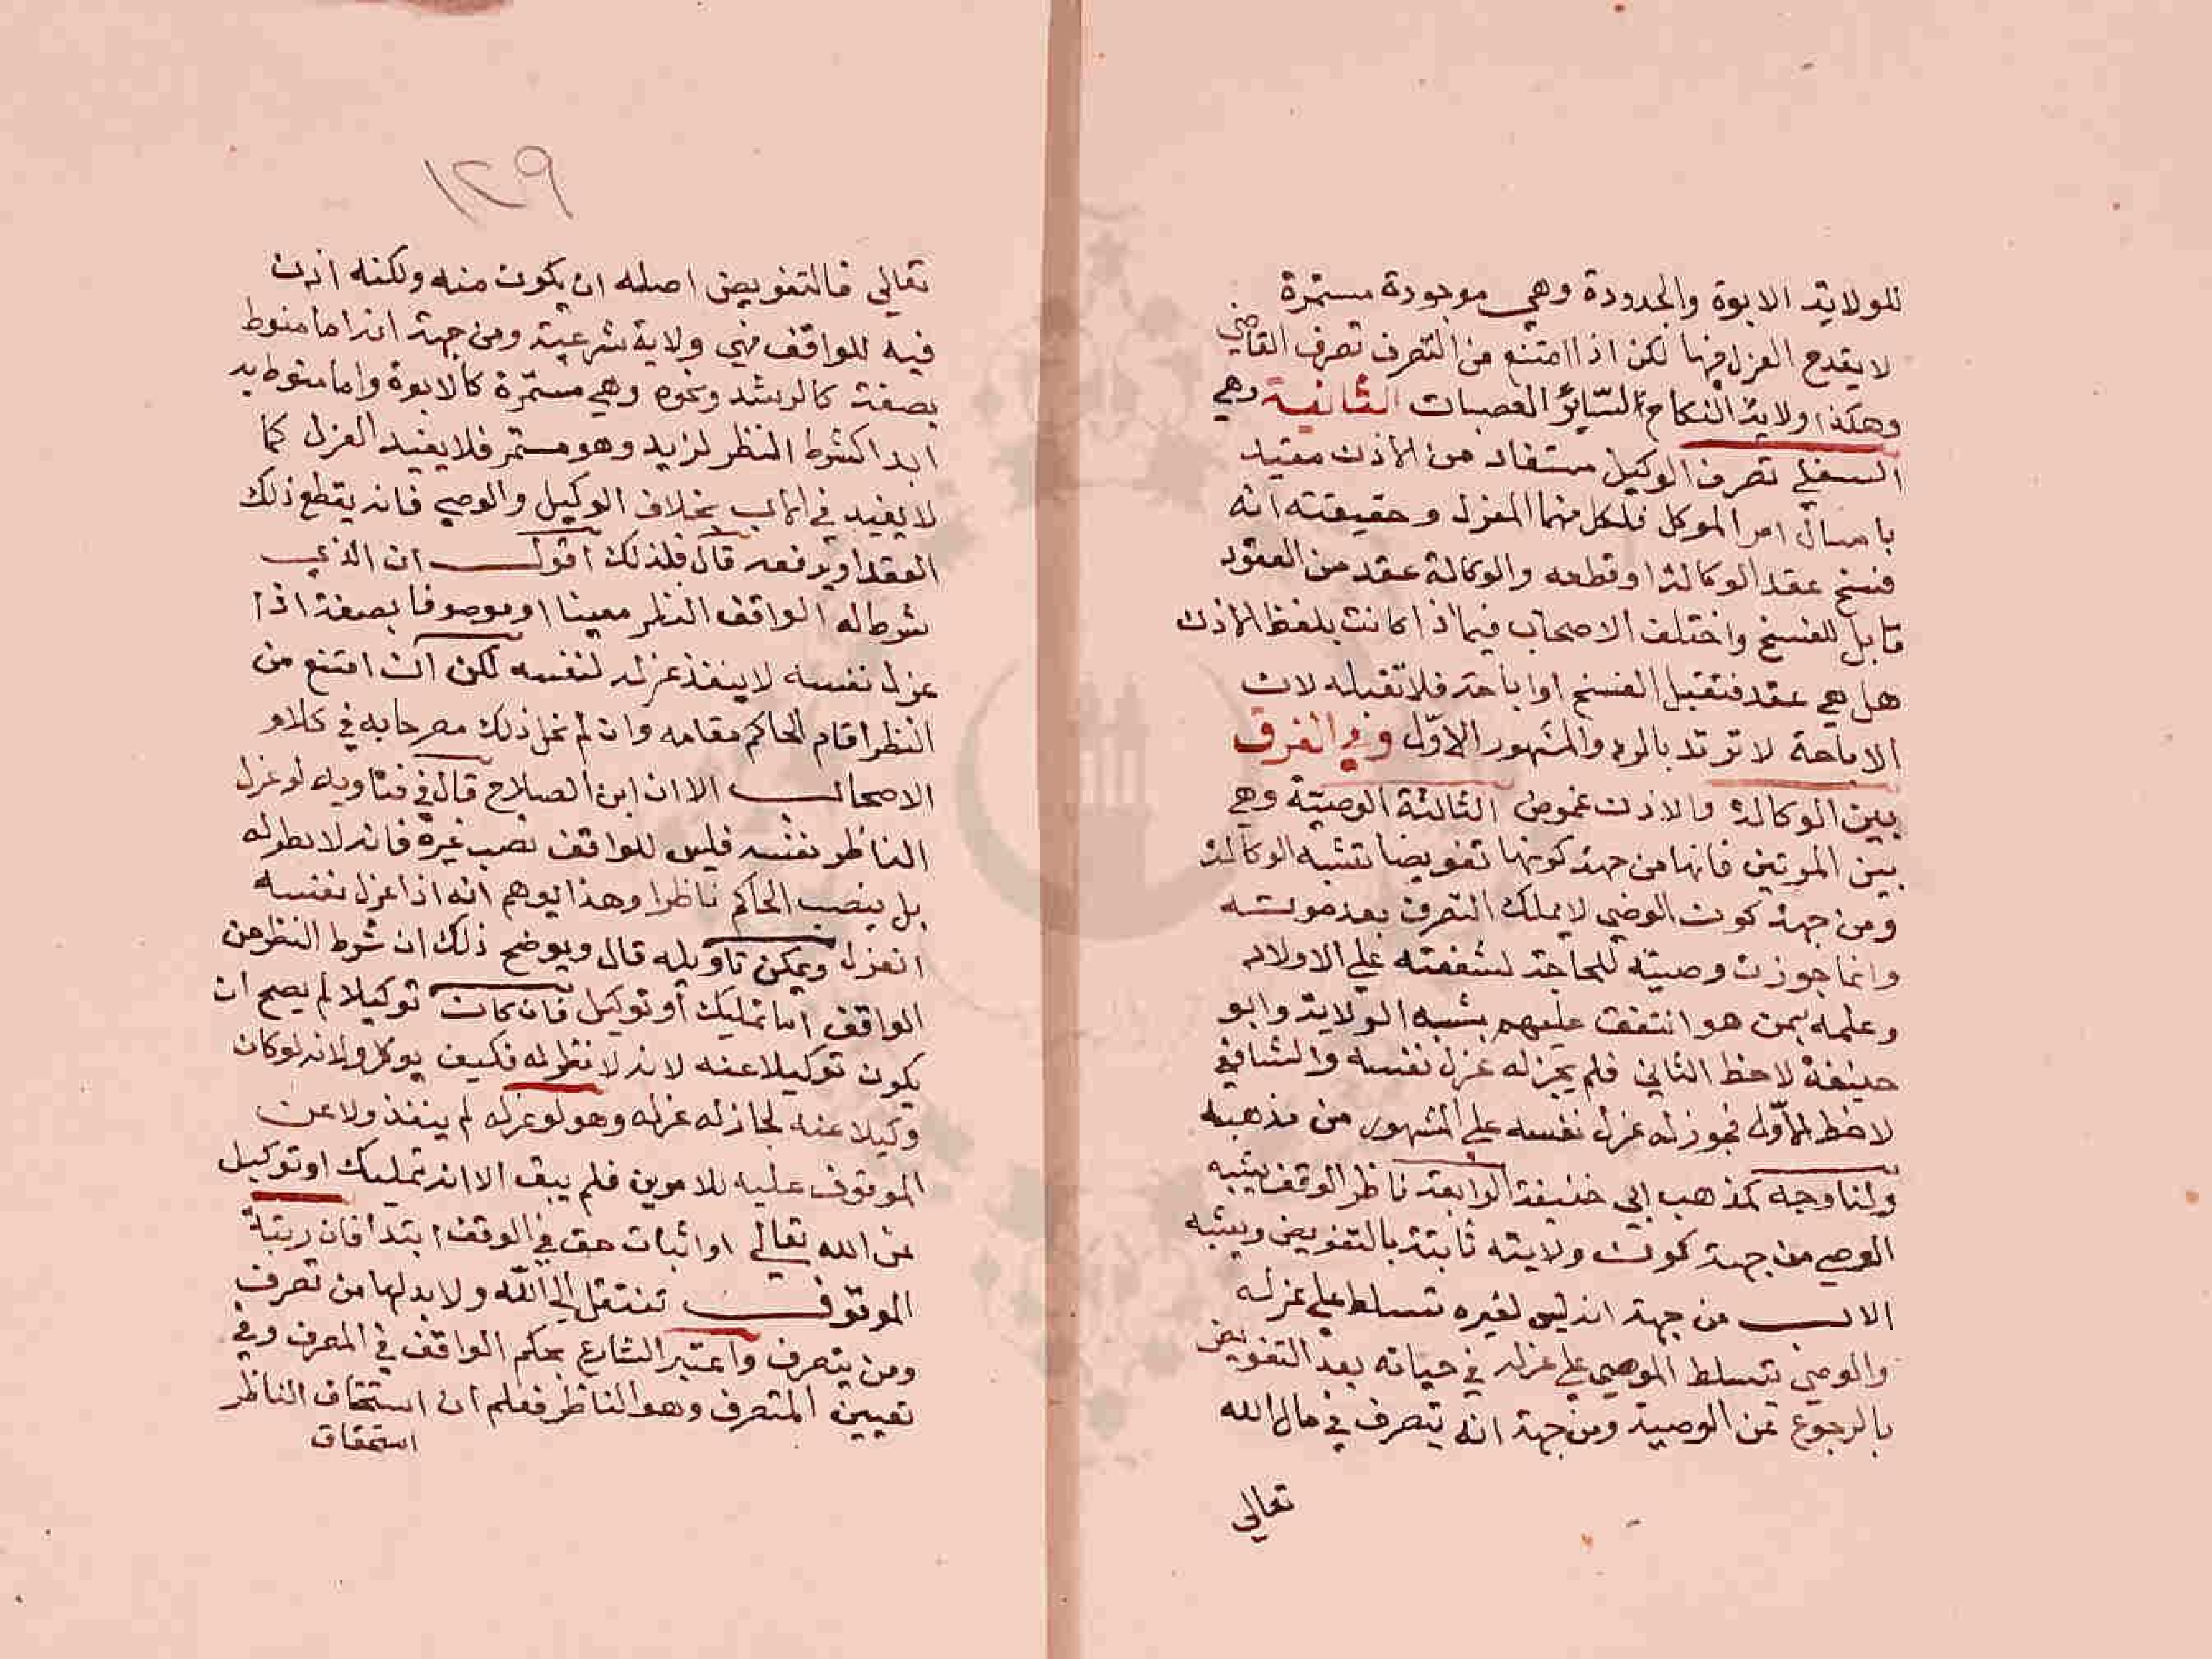 للولاية الابوة والجدودة وهي موجودة مستمرة
لا يقدح العزل فيها لكن اذا امتنع من التصرف تصرف القاضي
وهكذا ولاية النكاح لسائر العصبات الثانية وهي
السفلي تصرف الوكيل مستفاد من الاذن مقيد
بامتثال امر الموكل فلكل منهما العزل وحقيقته انه
فسخ عقد الوكالة او قطعه والوكالة عقد من العقود
قابل للفسخ واختلف الاصحاب فيما اذا كانت بلفظ الاذن
هل هي عقد فتقبل الفسخ او اباحة فلا تقبله لان
الاباحة لا ترتد بالرد والمشهور الاول وفي الفرق
بين الوكالة والاذن غموض الثالثة الوصية وهي
بين المرتبتين فانها من جهة كونها تفويضا تشبه الوكالة
ومن جهة كون الموصي لا يملك التصرف بعد موته
وانما جوزت وصيته للحاجة لشفقته علي الاولاد
وعلمه بمن هو اشفق عليهم يشبه الولاية وابو
حنيفة لاحظ الثاني فلم يجز له عزل نفسه والشافعي
لاحظ الاول فجوز له عزل نفسه علي المشهور من مذهبه
ولنا وجه كمذهب ابي حنيفة الرابعة ناظر الوقف يشبه
الوصي من جهة كون ولايته ثابتة بالتفويض ويشبه
الاب من جهة انه ليس لغيره تسلط علي عزله
والوصي يتسلط الموصي علي عزله في حياته بعد التفويض
بالرجوع عن الوصية ومن جهة انه يتصرف في مال الله
تعالي
١٢٩
تعالي فالتفويض اصله ان يكون منه ولكنه اذن
فيه للواقف فهي ولاية شرعية ومن جهة انه اما منوط
بصفة كالرشد ونحوه وهي مستمرة كالابوة واما منوط به
ابدا كشرط النظر لزيد وهو مستمر فلا يفيد العزل كما
لا يفيد في الاب بخلاف الوكيل والوصي فانه يقطع ذلك
العقد او يرفعه قال فلذلك اقول ان الذي
شرط له الواقف النظر معينا او موصوفا بصفة اذا
عزل نفسه لا ينفذ عزله لنفسه لكن ان امتنع من
النظر اقام الحاكم مقامه وان لم نخل ذلك مصرحا به في كلام
الاصحاب الا ان ابن الصلاح قال في فتاويه لو عزل
الناظر نفسه فليس للواقف نصب غيره فانه لا نظر له
بل ينصب الحاكم ناظرا وهذا يوهم انه اذا عزل نفسه
انعزل ويمكن تاويله قال ويوضح ذلك ان شرط النظر من
الواقف اما تمليك أو توكيل فان كان توكيلا لم يصح ان
يكون توكيلا عنه لانه لا نظر له فكيف يوكل ولانه لو كان
وكيلا عنه لجاز له عزله وهو لو عزله لم ينفذ ولا عن
الموقوف عليه للامرين فلم يبق الا انه تمليك او توكيل
عن الله تعالي او اثبات حق في الوقف ابتدا فان رقبة
الموقوف تنتقل الي الله ولا بد لها من تصرف
ومن يتصرف واعتبر الشارع بحكم الواقف في المصرف وفي
تعيين المتصرف وهو الناظر فعلم ان استحقاق الناظر
استحقاق